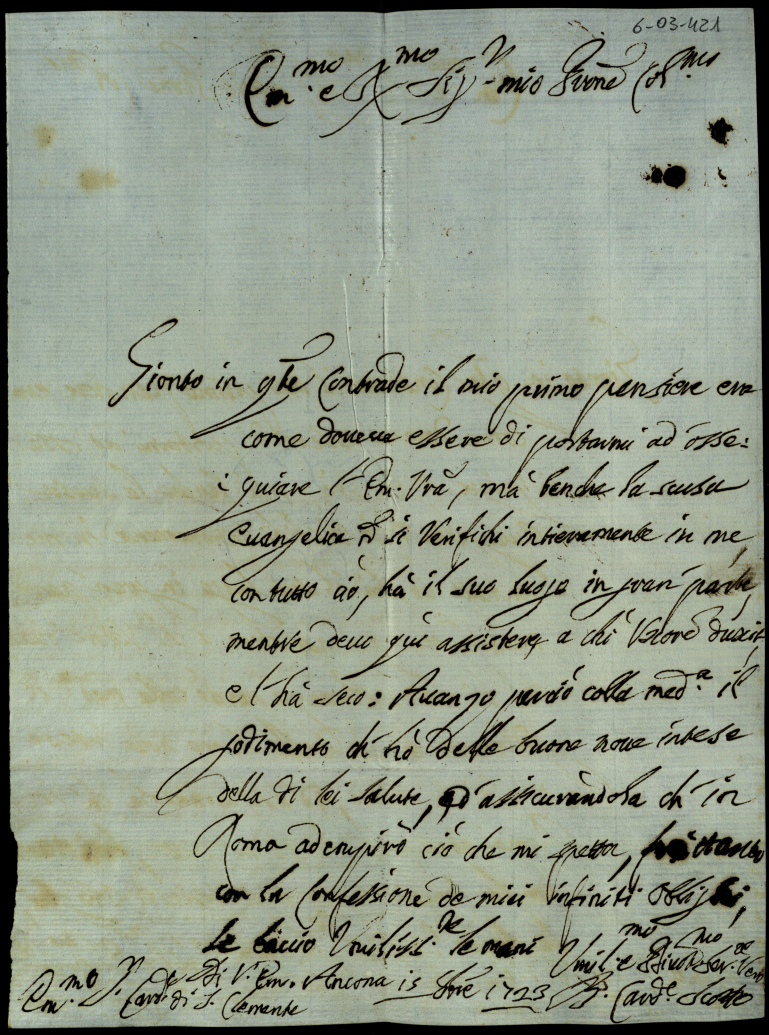 6-03-421
Em.mo e R.mo Sig.r mio P̄rone Col.mo
Gionto in qte Contrade il mio primo pensiere era
come doueua essere di portarmi ad osse:
:quiare l'Em. Vra, mà benche la scusa
Euangelica si Verifichi intieramente in me,
con tutto ciò, hà il suo luogo in gran parte,
mentre deuo quì assistere a chi Uxorē duxit,
e l'hà seco: Auanzo perciò colla med.a il
godimento ch'hò delle buone noue intese
della di lei salute, ed assicurandola ch'in
Roma adempirò ciò che mi spetta, frattanto
con la Confessione de miei infiniti oblighi,
le baccio Umiliss.te le mani
Di V. Em. Ancona 15 1723
Umil.mo e Diuot.mo Ser. Vero
Em.mo S.r Card.e di S. Clemente
Card.e Scotto